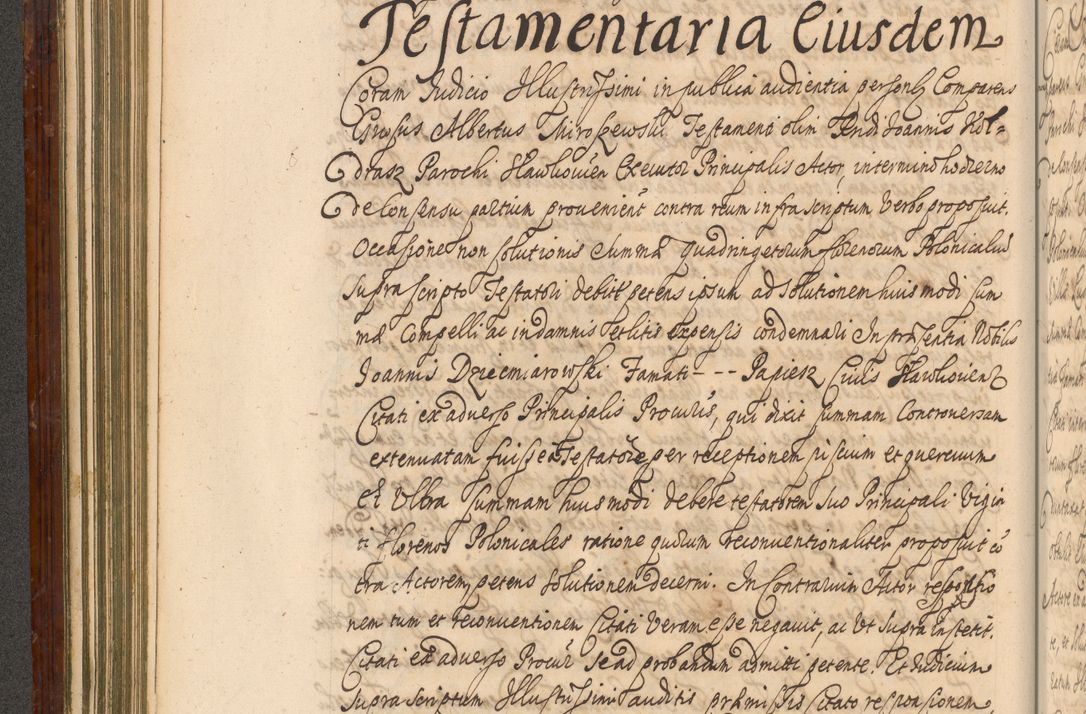 Testamentaria Eiusdem
Coram Iudicio Illustrissimi in publica audientia personlr Comparens
Gnosus Albertus Miroszewski Testamenti olim Rendi Ioannis Kol=
drasz Parochi Slawkouien Executor Principalis Actor, intermino hodierno
de Consensu partium prouenient contra reum infra scriptum Verbo proposuit.
Occasione non solutionis Summæ quadringetorum florenorum Polonicaliu
Supra scripto Testatori debit petens ipsum ad solutionem huismodi Sum
mæ Compelli ac indamnis et litis expensis condemnari In præsentia Nobilis
Ioannis Dziecmiarowski Famati - - - Papiesz Ciuis Slawkouien
Citati ex aduerso Principalis Procuris, qui dixit summam Controuersam
extenuatam fuisse à Testatore per receptionem piscium et quercuum
et Vltra summam huiusmodi debere testatorem suo Principali Vigin
ti florenos Polonicales ratione quorum reconuentionaliter proposuit cō
tra Actorem, petens solutionem decerni. In Contrarium Actor responsio
nem tum et reconuentionem Citati Veram esse negauit, ac Vt supra institit.
Citati ex aduerso Procur se ad probandum admitti petente. Et Iudicium
supra scriptum Illustrissimi auditis præmissis Citato responsionem